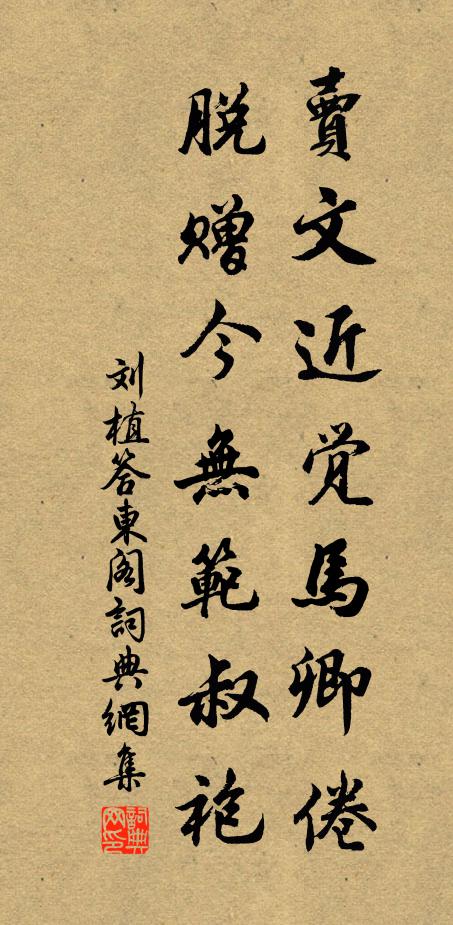 賣文近覚馬卿倦
脱贈今無範叔袍
刘植答東阁詞典網集
詞典网印